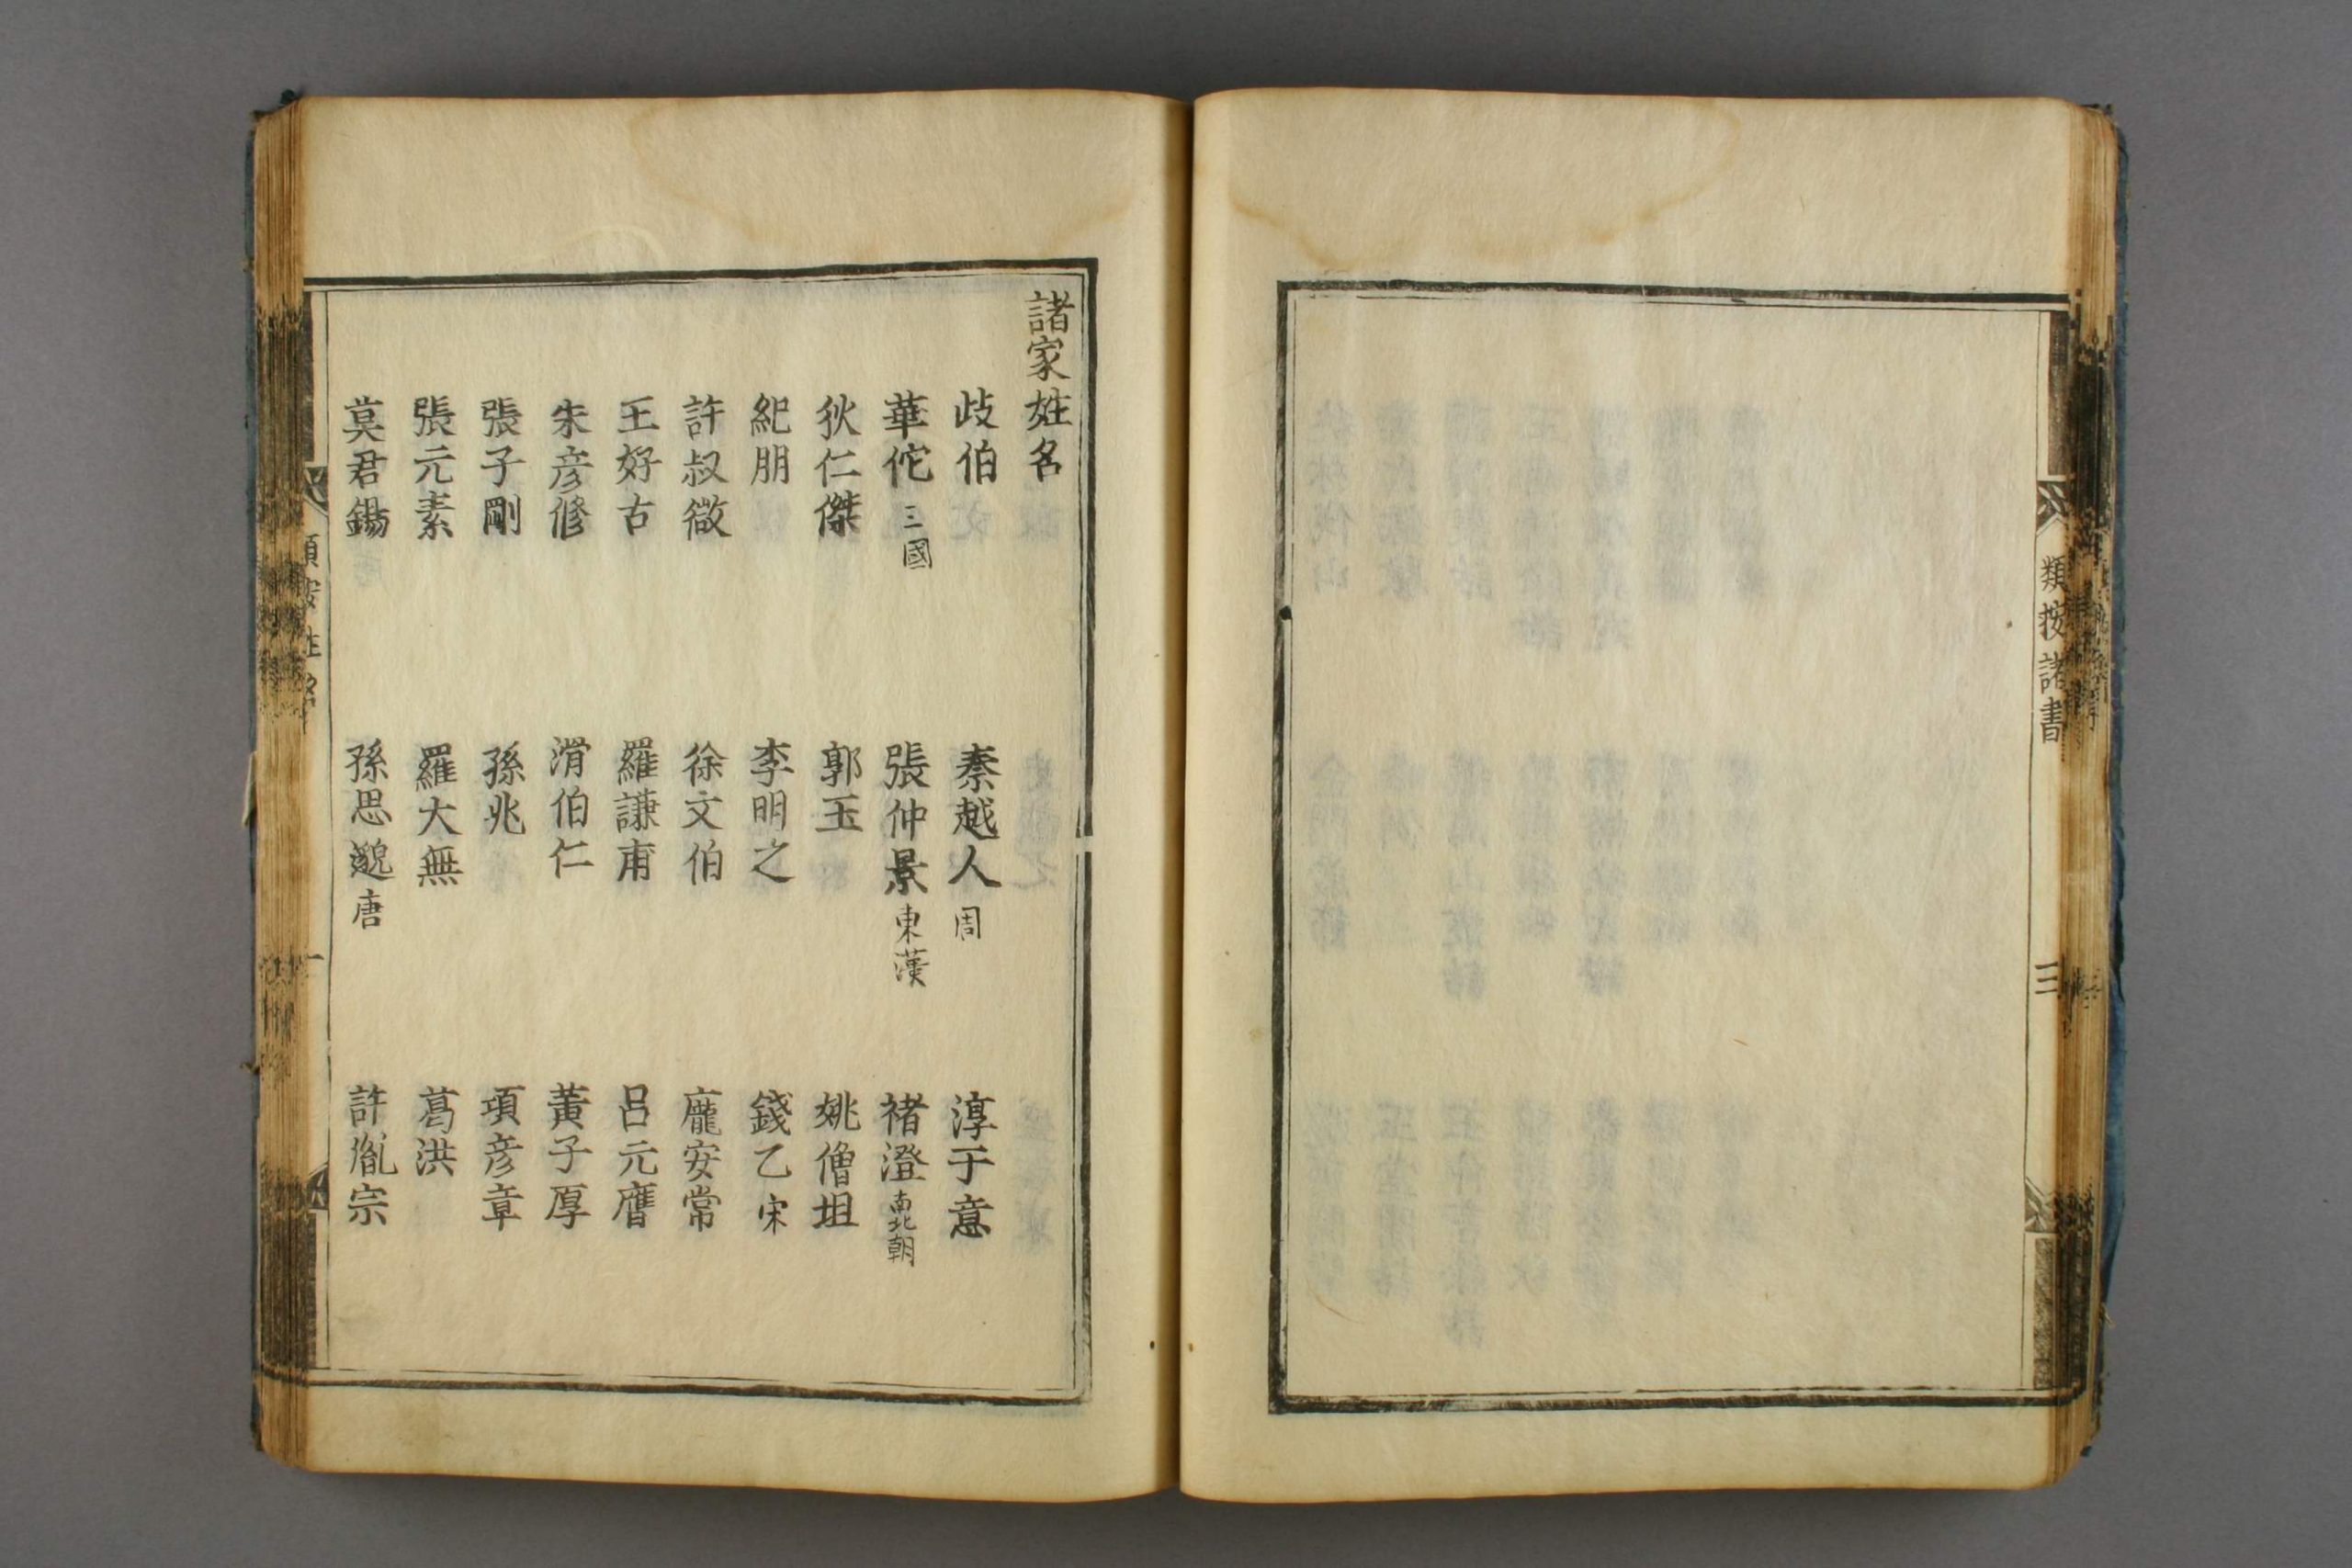 類按諸書
三
諸家姓名
歧伯　秦越人周　淳于意
華佗三國　張仲景東漢　褚澄南北朝
狄仁傑　郭玉　姚僧坦
紀朋　李明之　錢乙宋
許叔微　徐文伯　龐安常
王好古　羅謙甫　呂元膺
朱彦修　滑伯仁　黃子厚
張子剛　孫兆　項彦章
張元素　羅大無　葛洪
莫君錫　孫思邈唐　許胤宗